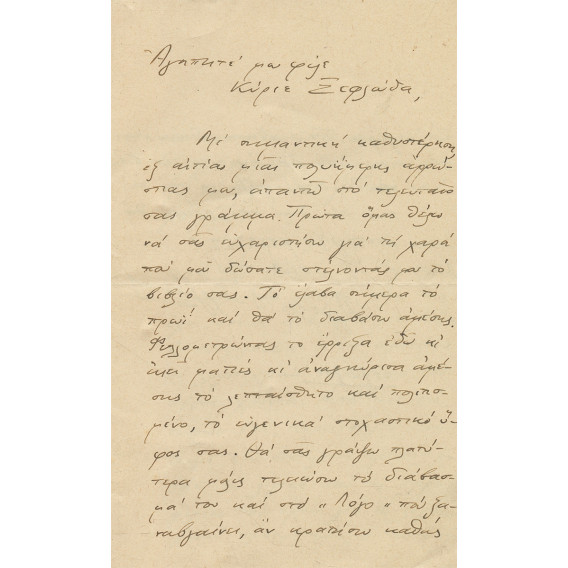 Ἀγαπητέ μου φίλε
Κύριε Ξεφλούδα,
Μέ σημαντική καθυστέρηση
ἐξ αἰτίας μιᾶς πολυήμερης ἀρρώ-
στιας μου, ἀπαντῶ στό τελευταῖο
σας γράμμα. Πρῶτα ὅμως θέλω
νά σᾶς εὐχαριστήσω γιά τή χαρά
πού μοῦ δώσατε στέλνοντάς μου τό
βιβλίο σας. Τό ἔλαβα σήμερα τό
πρωί καί θά τό διαβάσω ἀμέσως.
Φυλλομετρώντας το ἔρριξα ἐδῶ κι
ἐκεῖ ματιές κι ἀναγνώρισα ἀμέ-
σως τό λεπταίσθητο καί πολιτισ-
μένο, τό εὐγενικά στοχαστικό ὕ-
φος σας. Θά σᾶς γράψω πλατύ-
τερα μόλις τελειώσω τό διάβασ-
μά του καί στό "Λόγο" πού ξα-
ναβγαίνει, ἄν κρατήσω καθώς